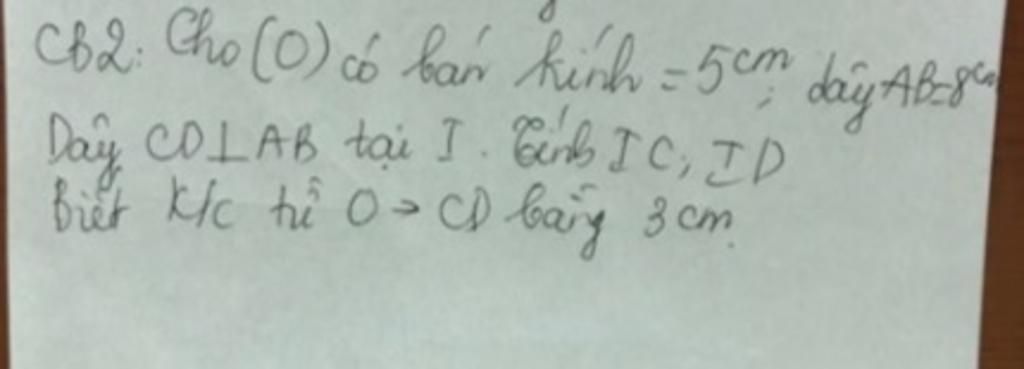 CB2: Cho (O) có bán kính = 5cm; dây AB=8cm
Dây CD⊥AB tại I. Tính IC, ID
Biết k/c từ O → CD bằng 3 cm.